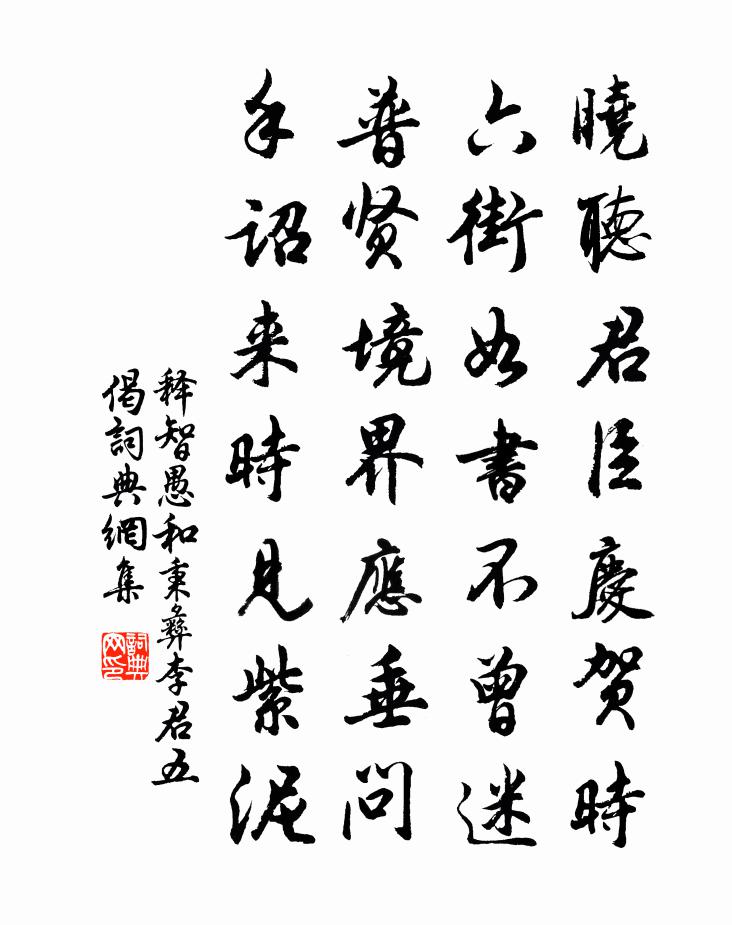 曉聽君臣慶贺時
六街如書不曾迷
普贤境界應垂問
手詔来時見紫泥
释智愚和秉彝李君五
偈詞典網集
詞典网印